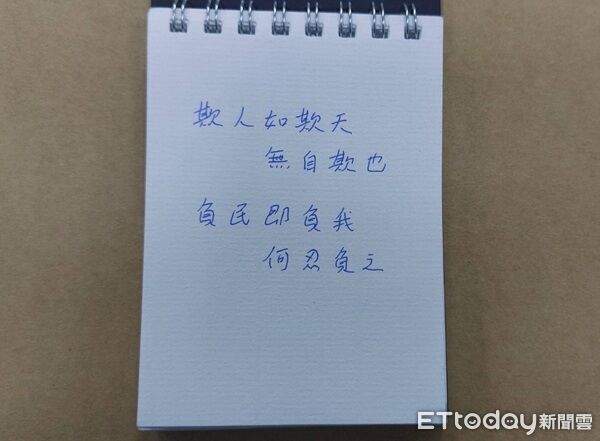 欺人如欺天
無自欺也
負民即負我
何忍負之
ETtoday新聞雲